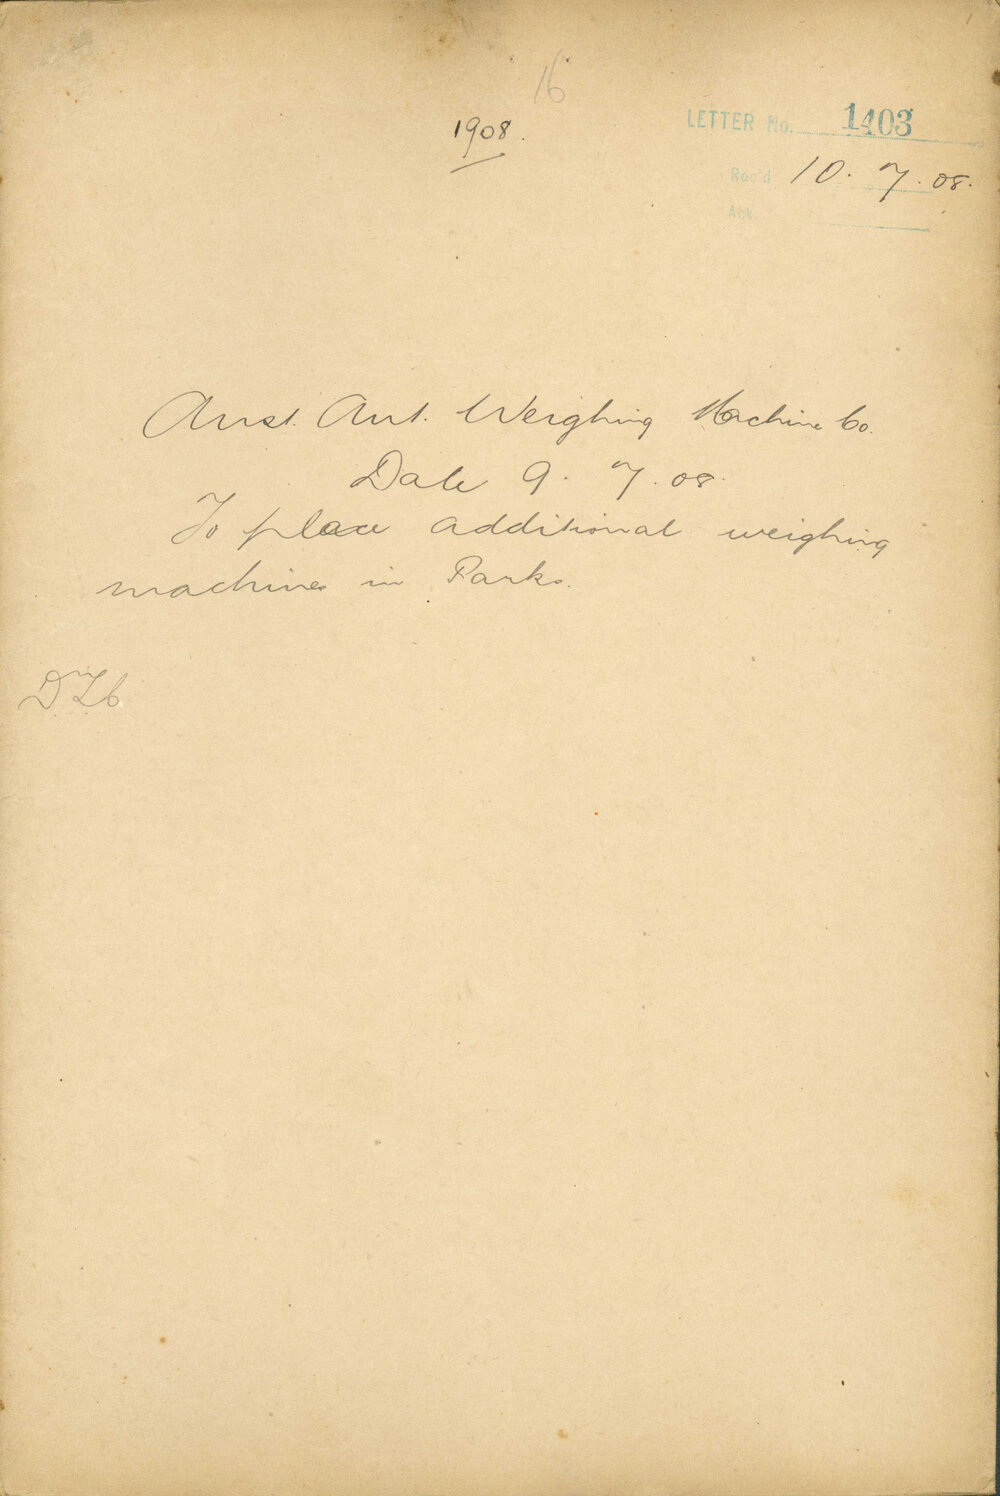 16
1908.
LETTER No. 1403
Rec'd 10.7.08.
Ack.
Aust. Aut. Weighing Machine Co.
Date 9.7.08.
To place additional weighing
machines in Parks.